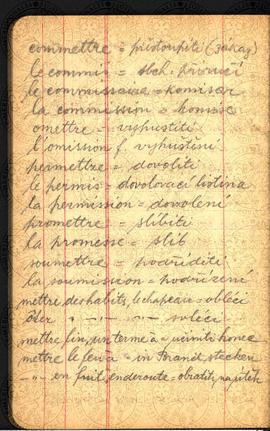 commettre = přestoupiti (zákaz)
le commis = obch. příručí
le commissaire = komisař
la commission = komise
omettre = vypustiti
l'omission f. vypuštění
permettre = dovoliti
le permis = dovolovací listina
la permission = dovolení
promettre = slíbiti
la promesse = slib
soumettre = podříditi
la soumission = podřízení
mettre des habits, le chapeau = obléci
ôter " -"- "- svléci
mettre fin, un terme à = učiniti konec
mettre le feu à = in Brand stecken
-"- en fuit, en deroute = obrátiti na útěk